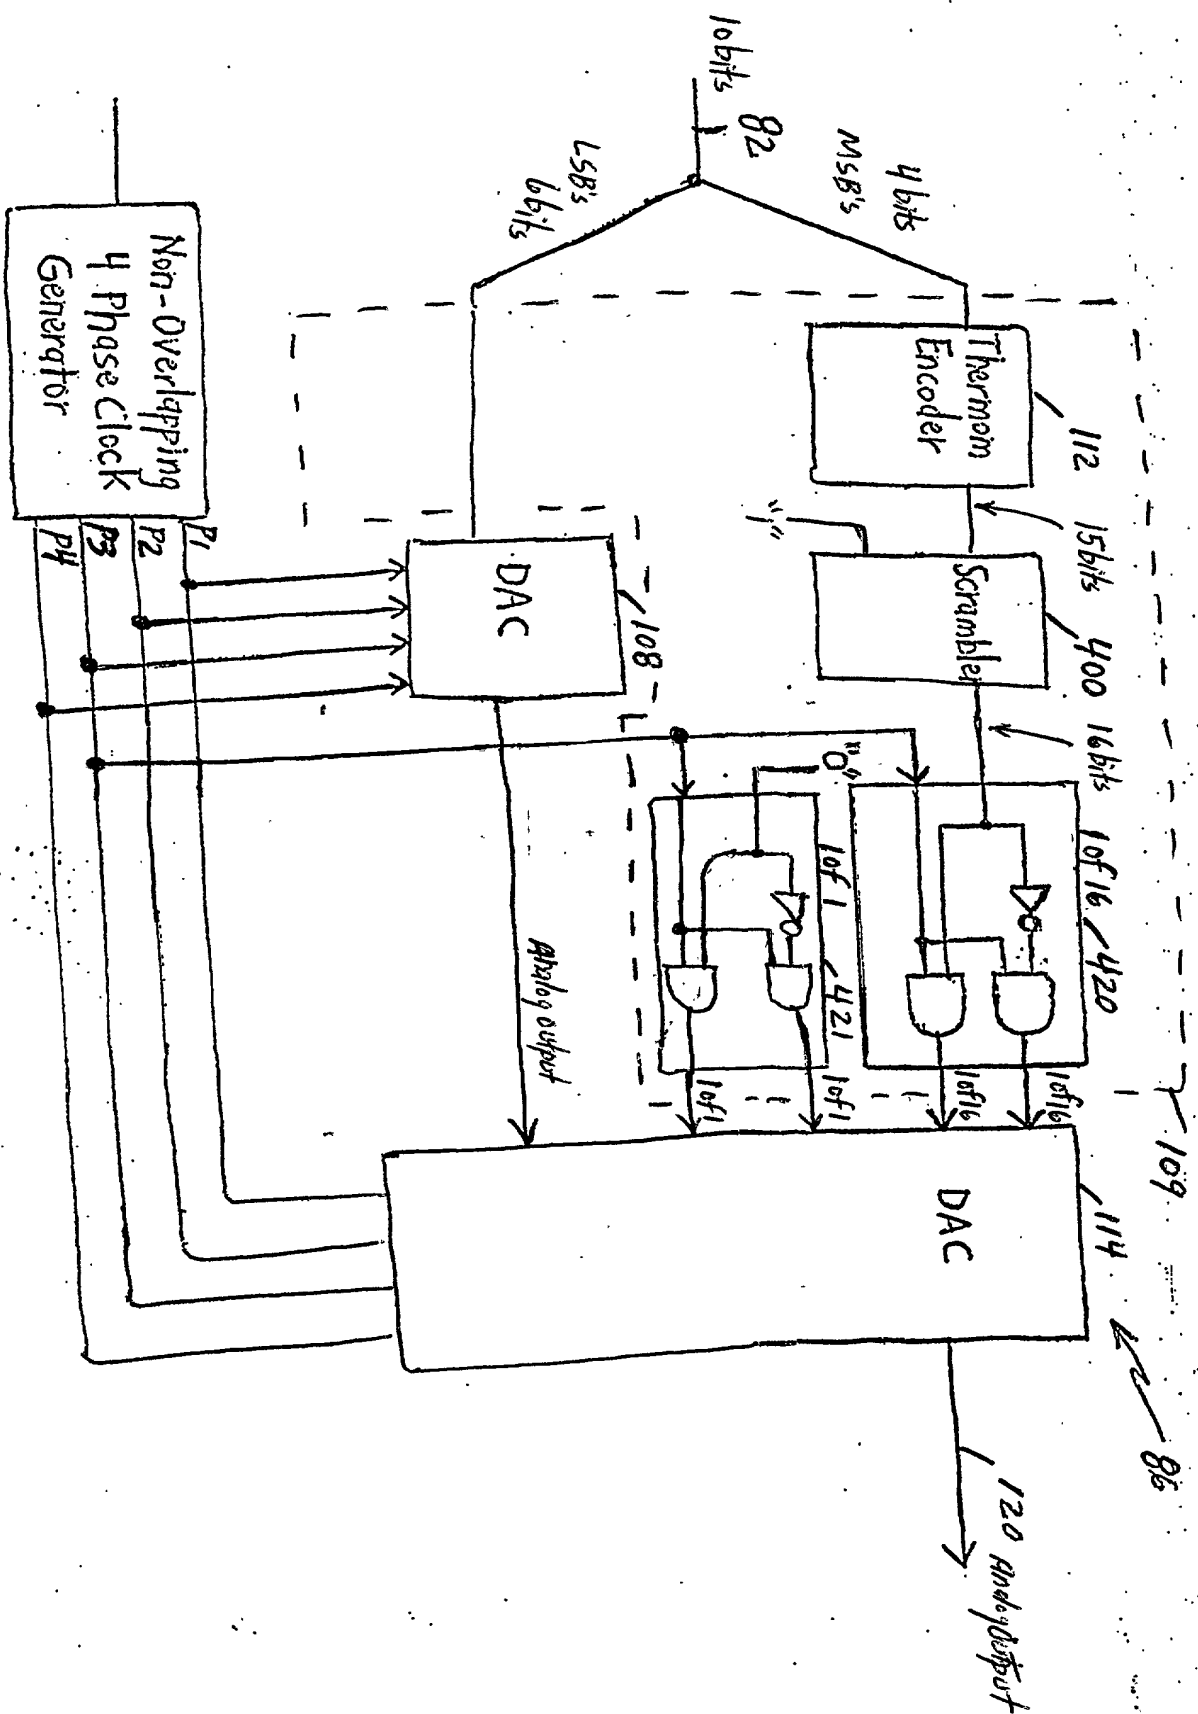 10bits
82
4bits
MSB's
LSB's
6bits
Thermom
Encoder
112
15bits
Scrambler
400
16bits
1of16
420
1of16
1of16
109
"1"
"0"
1of1
421
1of1
1of1
DAC
108
Analog output
DAC
114
86
120 Analog Output
Non-Overlapping
4 Phase Clock
Generator
P1
P2
P3
P4